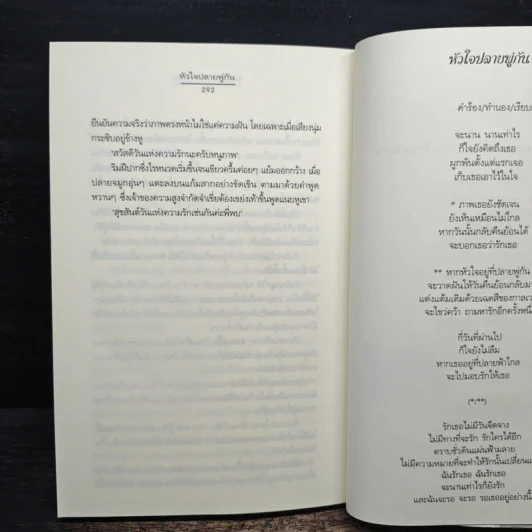 หัวใจปลายพู่กัน
292
ยืนยันความจริงว่าภาพตรงหน้าไม่ใช่แค่ความฝัน โดยเฉพาะเมื่อเสียงนุ่ม
กระซิบอยู่ข้างหู
'สวัสดีวันแห่งความรักนะครับหนูภาพ'
ริมฝีปากซึ่งไรหนวดเริ่มขึ้นจนเขียวครึ้มค่อยๆ แย้มออกกว้าง เมื่อ
ปลายจมูกอุ่นๆ แตะลงบนแก้มสากอย่างขัดเขิน ตามมาด้วยคำพูด
หวานๆ ซึ่งเจ้าของความสูงจำกัดจำเขี่ยต้องเขย่งเท้าขึ้นพูดแนบหูเขา
'สุขสันต์วันแห่งความรักเช่นกันค่ะพี่พบ'
หัวใจปลายพู่กัน
คำร้อง/ทำนอง/เรียบ
จะนาน นานเท่าไร
ก็ใจยังคิดถึงเธอ
ผูกพันตั้งแต่แรกเจอ
เก็บเธอเอาไว้ในใจ
* ภาพเธอยังชัดเจน
ยังเห็นเหมือนไม่ไกล
หากวันนั้นกลับคืนย้อนได้
จะบอกเธอว่ารักเธอ
** หากหัวใจอยู่ที่ปลายพู่กัน
จะวาดฝันให้วันคืนย้อนกลับมา
แต่งแต้มเติมด้วยเฉดสีของกาลเว
จะไขว่คว้า ถามหารักอีกครั้งหนึ่
กี่วันที่ผ่านไป
ก็ใจยังไม่ลืม
หากเธออยู่ที่ปลายฟ้าไกล
จะไปมอบรักให้เธอ
(*/**)
รักเธอไม่มีวันจืดจาง
ไม่มีทางที่จะรัก รักใครได้อีก
ตราบชั่วดินแผ่นฟ้ามลาย
ไม่มีความหมายที่จะทำให้รักนั้นเปลี่ยนแ
ฉันรักเธอ ฉันรักเธอ
จะนานเท่าไรก็ยังรัก
และฉันจะรอ จะรอ รอเธออยู่อย่างนี้